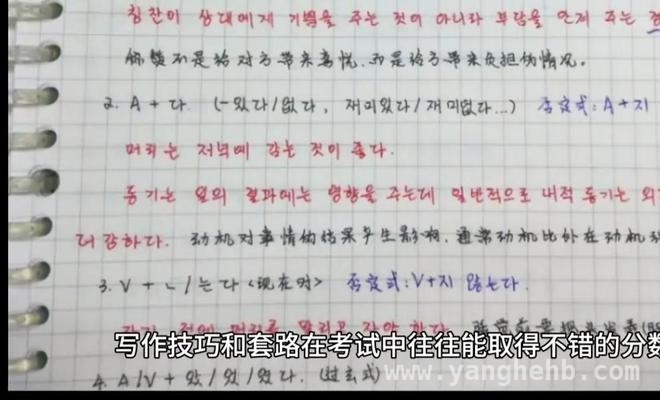 칭찬이 상대에게 기쁨을 주는 것이 아니라 부담을 안겨 주는
称赞不是给对方带来喜悦,而是给方带来负担的情况。
2. A + 다. (-있다/없다, 재미있다/재미없다...) 否定式:A+지
머리는 저녁에 감는 것이 좋다.
동기는 일의 결과에는 영향을 주는데 일반적으로 내적 동기는 외
더 강하다. 动机对事情的结果产生影响,通常动机比外在动机
3. V + ㄴ/는다 <现在时> 否定式:V+지 않는다.
자기 전에 머리를 말리고 자야 한다.
写作技巧和套路在考试中往往能取得不错的分数
4. A/V + 았/었/였다. (过去式)
www.yanghehb.com